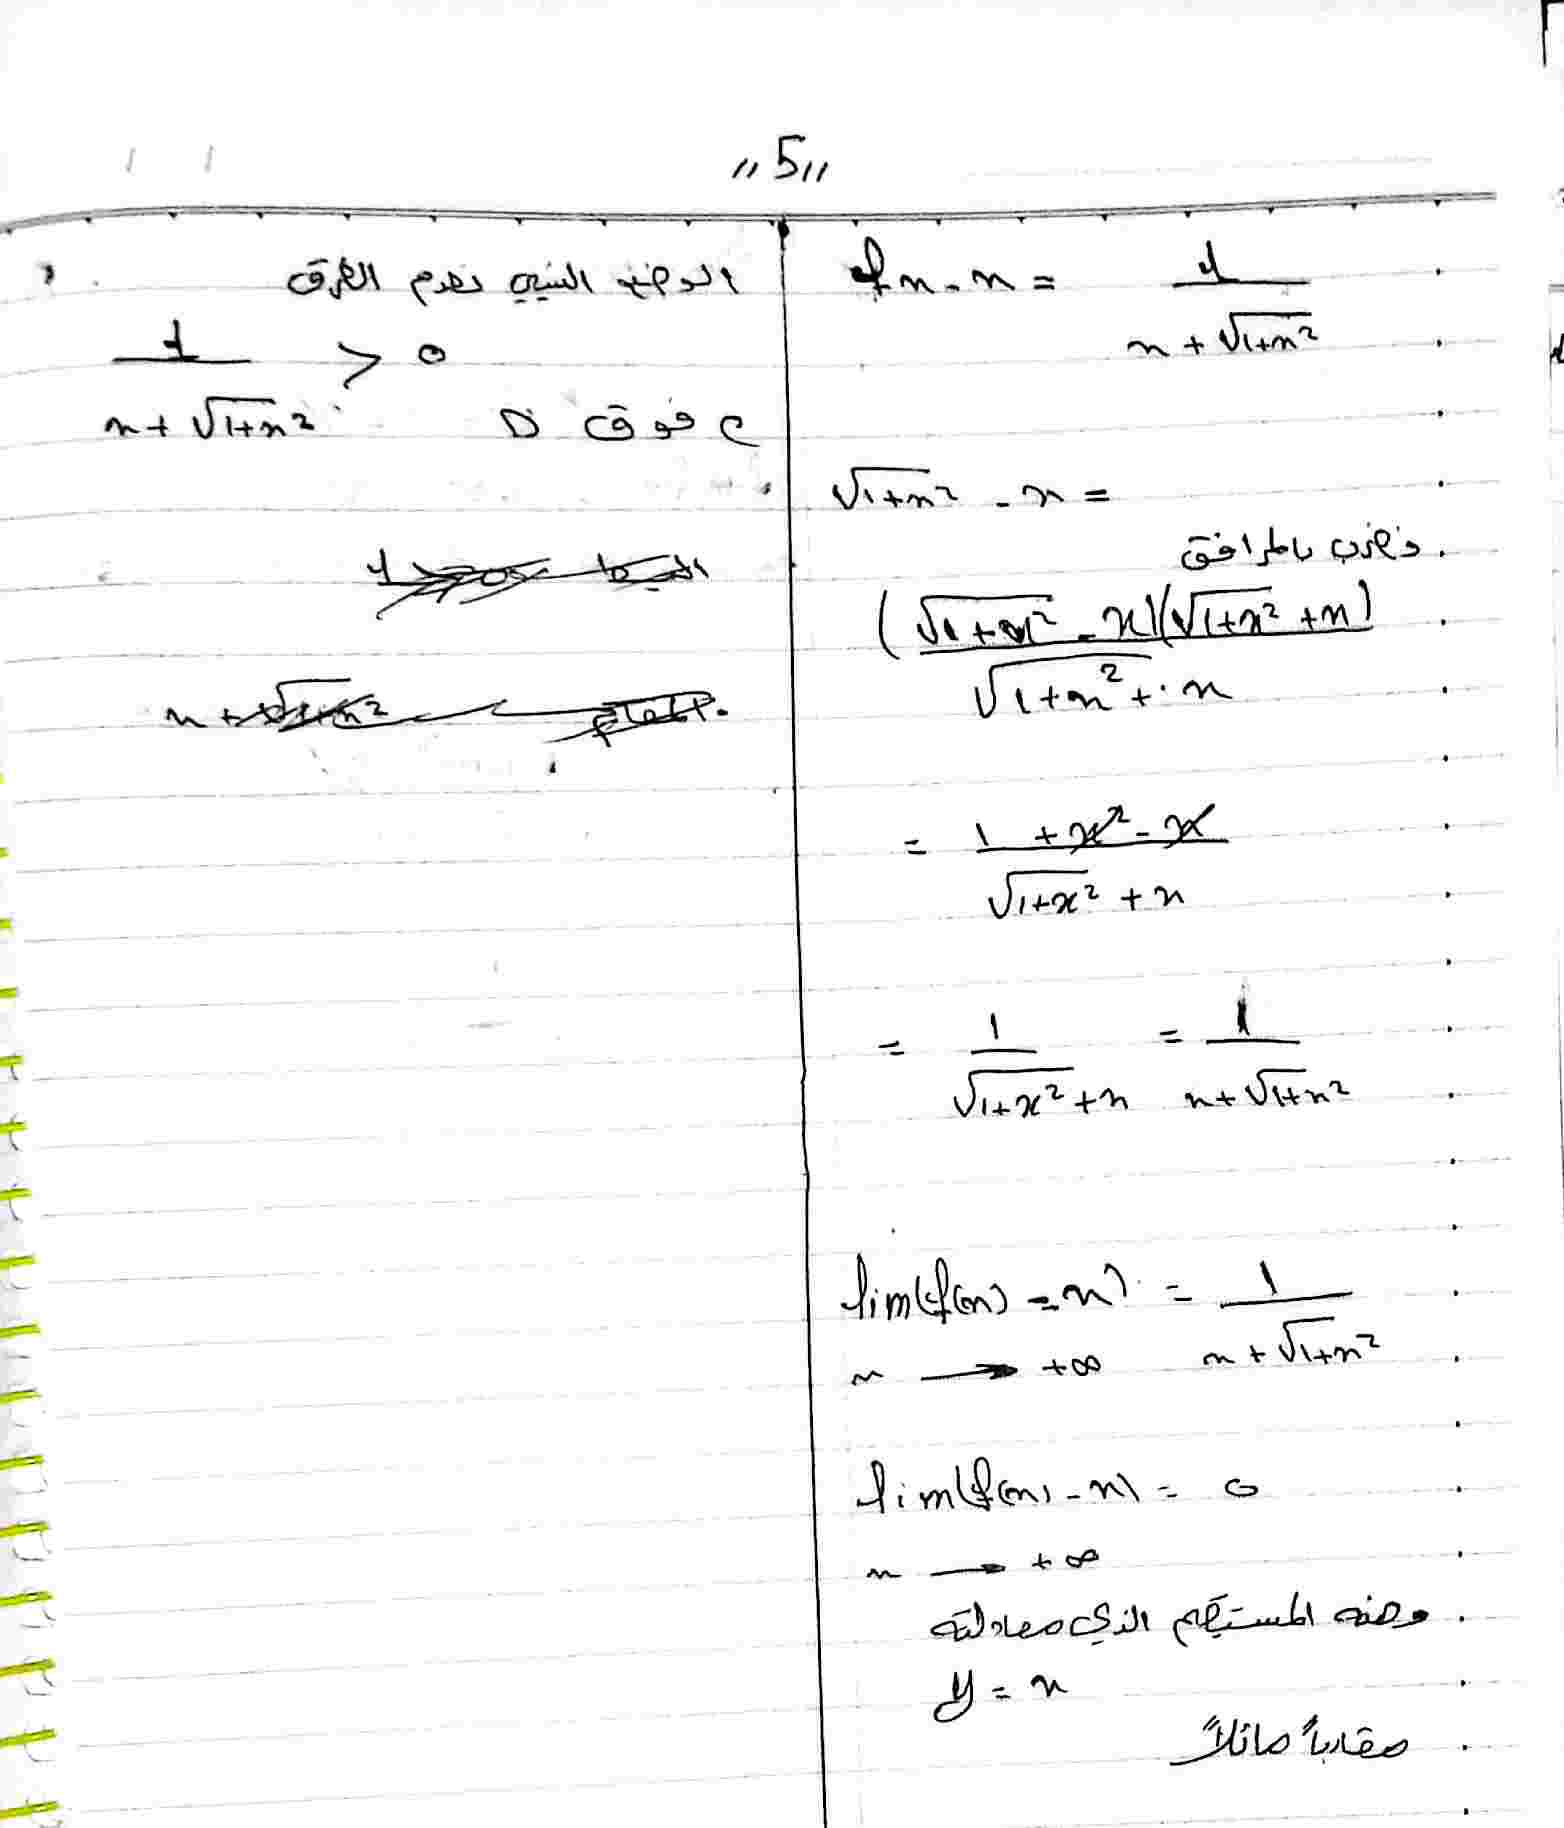 "5"
f x - x = 1 / (x + √(1+x²))
√(1+x²) - x =
نضرب بالمرافق
(√(1+x²) - x)(√(1+x²) + x) / (√(1+x²) + x)
= (1 + x² - x) / (√(1+x²) + x)
= 1 / (√(1+x²) + x) = 1 / (x + √(1+x²))
lim(f(x) - x) = 1 / (x + √(1+x²))
x → +∞
lim(f(x) - x) = 0
x → +∞
ومنه المستقيم الذي معادلته
y = x
مقارباً مائلاً
الوضع النسبي ندرس الفرق
1 / (x + √(1+x²)) > 0
C فوق D
البسط 1
المقام x + √(1+x²)